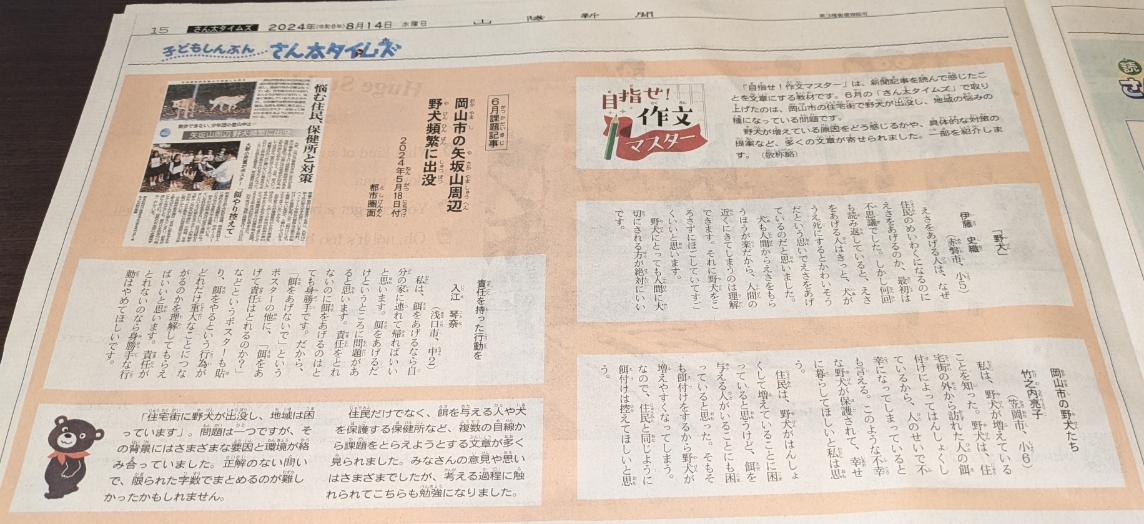 15 さん太タイムズ 2024年(令和6年)8月14日 水曜日
山陽新聞
第3種郵便物認可
子どもしんぶん さん太タイムズ
目指せ!
作文
マスター
「目指せ!作文マスター」は、新聞記事を読んで感じたこ
とを文章にする教材です。6月の「さん太タイムズ」で取り
上げたのは、岡山市の住宅街で野犬が出没し、地域の悩みの
種になっている問題です。
野犬が増えている原因をどう感じるかや、具体的な対策の
提案など、多くの文章が寄せられました。二部を紹介しま
す。(敬称略)
6月課題記事
岡山市の矢坂山周辺
野犬頻繁に出没
2024年5月18日付
都市圏面
悩む住民、保健所と対策
矢坂山周辺 野犬頻繁に出没
餌やり控えて
「野犬」
伊藤 史織
(赤磐市、小5)
えさをあげる人は、なぜ
住民のめいわくになるのに
えさをあげるのか、最初は
不思議でした。しかし何回
も読み返していると、えさ
をあげる人はきっと、犬が
うえ死にするとかわいそう
だという思いでえさをあげ
ているのだと思いました。
犬も人間からえさをもら
うほうが楽だから、人間の
近くにきてしまうのは理解
できます。それに野犬をこ
ろさずにほごしていてすご
くいいと思います。
野犬にとっても人間に大
切にされる方が絶対にいい
です。
責任を持った行動を
入江 琴奈
(浅口市、中2)
私は、餌をあげるなら自
分の家に連れて帰ればいい
と思います。餌をあげるだ
けというところに問題があ
ると思います。責任をとれ
ないのに餌をあげるのはと
ても身勝手です。だから、
「餌をあげないで」という
ポスターの他に、「餌をあ
げて責任はとれるのか?」
などというポスターも貼
り、餌をやるという行為が
どれだけ重大なことにつな
がるのかを理解してもらえ
ばいいと思います。責任が
とれないのなら身勝手な行
動はやめてほしいです。
岡山市の野犬たち
竹之内亮子
(笠岡市、小6)
私は、野犬が増えている
ことを知った。野犬は、住
宅街の外から訪れた人の餌
付けによってはんしょくし
ているから、人のせいで不
幸になってしまっていると
も言える。このような不幸
な野犬が保護されて、幸せ
に暮らしてほしいと私は思
う。
住民は、野犬がはんしょ
くして増えていることに困
っていると思うけど、餌を
与える人がいることにも困
っていると思った。そもそ
も餌付けをするから野犬が
増えやすくなってしまう。
なので、住民と同じように
餌付けは控えてほしいと思
う。
「住宅街に野犬が出没し、地域は困
っています」。問題は一つですが、そ
の背景にはさまざまな要因と環境が絡
み合っていました。正解のない問い
で、限られた字数でまとめるのが難し
かったかもしれません。
住民だけでなく、餌を与える人や犬
を保護する保健所など、複数の目線か
ら課題をとらえようとする文章が多く
見られました。みなさんの意見や思い
はさまざまでしたが、考える過程に触
れられてこちらも勉強になりました。